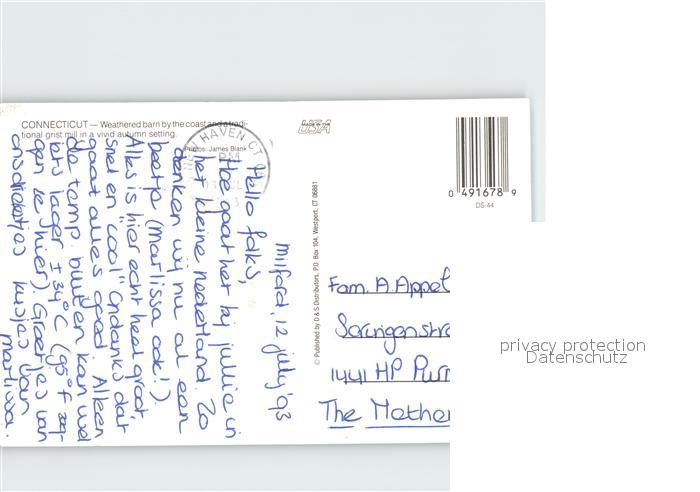 CONNECTICUT — Weathered barn by the coast and a tradi-
tional grist mill in a vivid autumn setting.
Photos: James Blank
HAVEN CT
PM
MADE IN THE
USA
© Published by D & S Distributors, P.O. Box 104, Westport, CT 06881
0 491678 9
DS-44
milford, 12 july '93
Hello folks,
Hoe gaat het bij jullie in
het kleine nederland. Zo
denken wij nu al een
beetje (marlissa ook!).
Alles is hier echt heel groot,
snel en "cool". Ondanks dat
gaat alles goed. Alleen
de temp. buiten kan wel
iets lager ± 34°C (95°F zeg-
gen ze hier). Groetjes van
ons kusjes van
marlissa.
Fam. A. Appel
1441 HP Purm
The Nether
privacy protection
Datenschutz